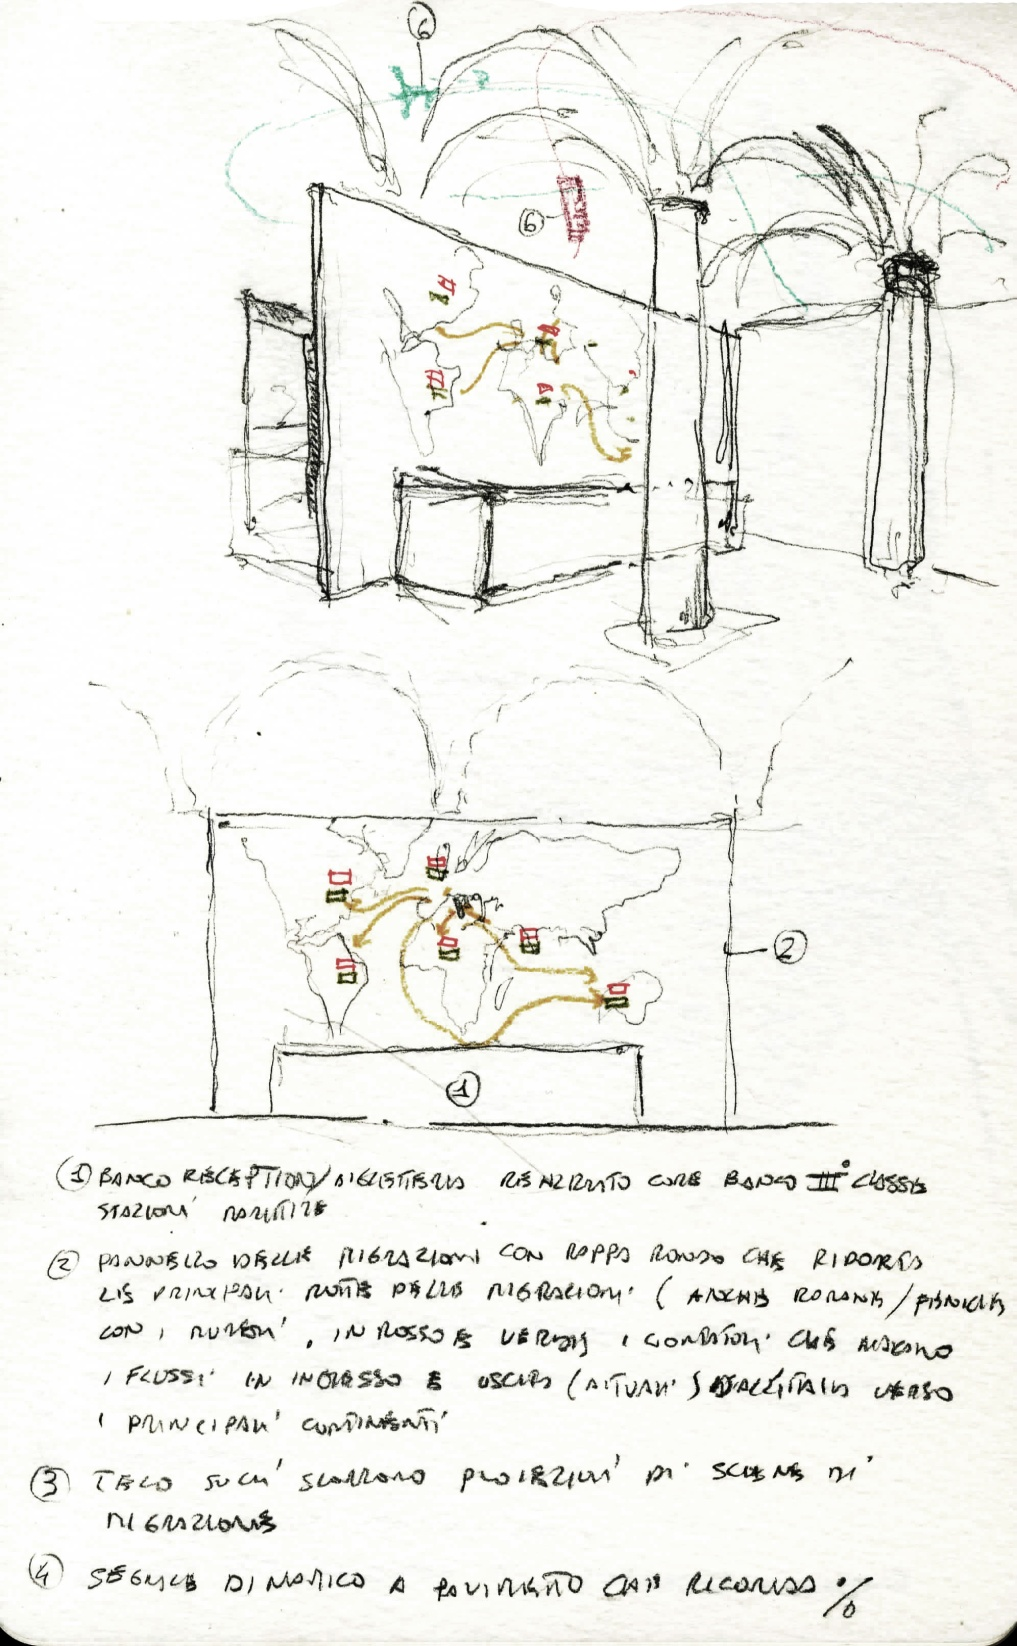 6
6
2
1
1 BANCO RECEPTION/BIGLIETTERIA COME BANCO III° CLASSE
STAZIONI MARITTIME
2 PANNELLO DELLE MIGRAZIONI CON MAPPA MONDO CHE RIPORTA
LE PRINCIPALI ROTTE DELLE MIGRAZIONI (ANCHE ROMANE/FENICIE
CON I NUMERI, IN ROSSO E VERDE I CONTATORI CHE
I FLUSSI IN INGRESSO E USCITA (ATTUALI) DALL'ITALIA VERSO
I PRINCIPALI CONTINENTI
3 TELO SU CUI SCORRONO PROIEZIONI DI SCENE DI
MIGRAZIONE
4 DINAMICO A PAVIMENTO CHE RICORDA %